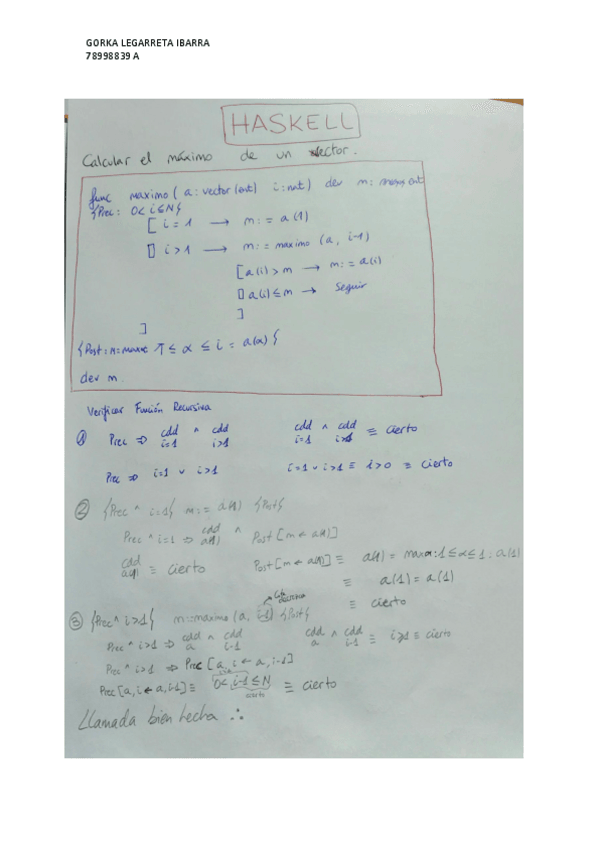 GORKA LEGARRETA IBARRA
78998839 A
HASKELL
Calcular el máximo de un vector.
func maximo (a: vector (ent) i: nat) dev m: ent
{Prec: 0 < i ≤ N}
[ i = 1 → m := a(1)
[] i > 1 → m := maximo (a, i-1)
[ a(i) > m → m := a(i)
[] a(i) ≤ m → Seguir
]
]
{Post: m = maxα 1 ≤ α ≤ i = a(α)}
dev m.
Verificar Función Recursiva
① Prec ⇒ cdd i=1 ∧ cdd i>1 cdd i=1 ∧ cdd i>1 ≡ cierto
Prec ⇒ i=1 ∨ i>1 i=1 ∨ i>1 ≡ i>0 ≡ cierto
② {Prec ∧ i=1} m := a(1) {Post}
Prec ∧ i=1 ⇒ cdd a(1) ∧ Post [m ← a(1)]
cdd a(1) ≡ cierto Post [m ← a(1)] ≡ a(1) = maxα: 1 ≤ α ≤ 1 : a(1)
≡ a(1) = a(1)
≡ cierto
③ {Prec ∧ i>1} m := maximo (a, i-1) {Post}
Prec ∧ i>1 ⇒ cdd a ∧ cdd i-1 cdd a ∧ cdd i-1 ≡ i≥1 ≡ cierto
Prec ∧ i>1 ⇒ Prec [a, i ← a, i-1]
Prec [a, i ← a, i-1] ≡ 0 < i-1 ≤ N ≡ cierto
cierto
Llamada bien hecha ∴